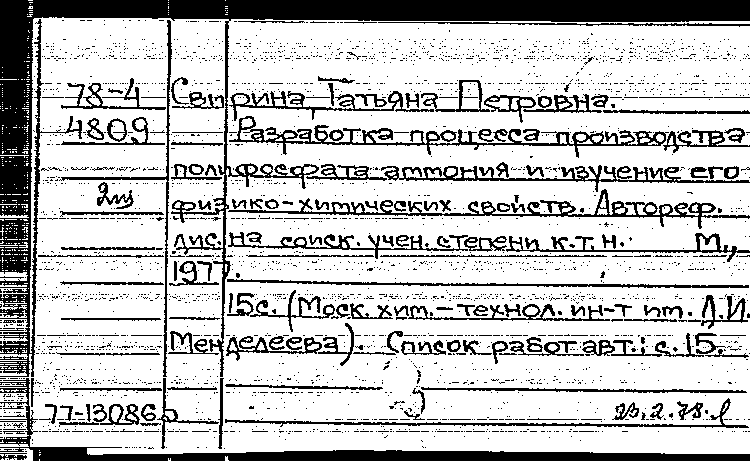 78-4 Свирина, Татьяна Петровна.
4809 Разработка процесса производства
полифосфата аммония и изучение его
физико-химических свойств. Автореф.
дис. на соиск. учен. степени к.т.н. М.,
1977.
15с. (Моск. хим.-технол. ин-т им. Д.И.
Менделеева). Список работ авт.: с. 15.
77-13086